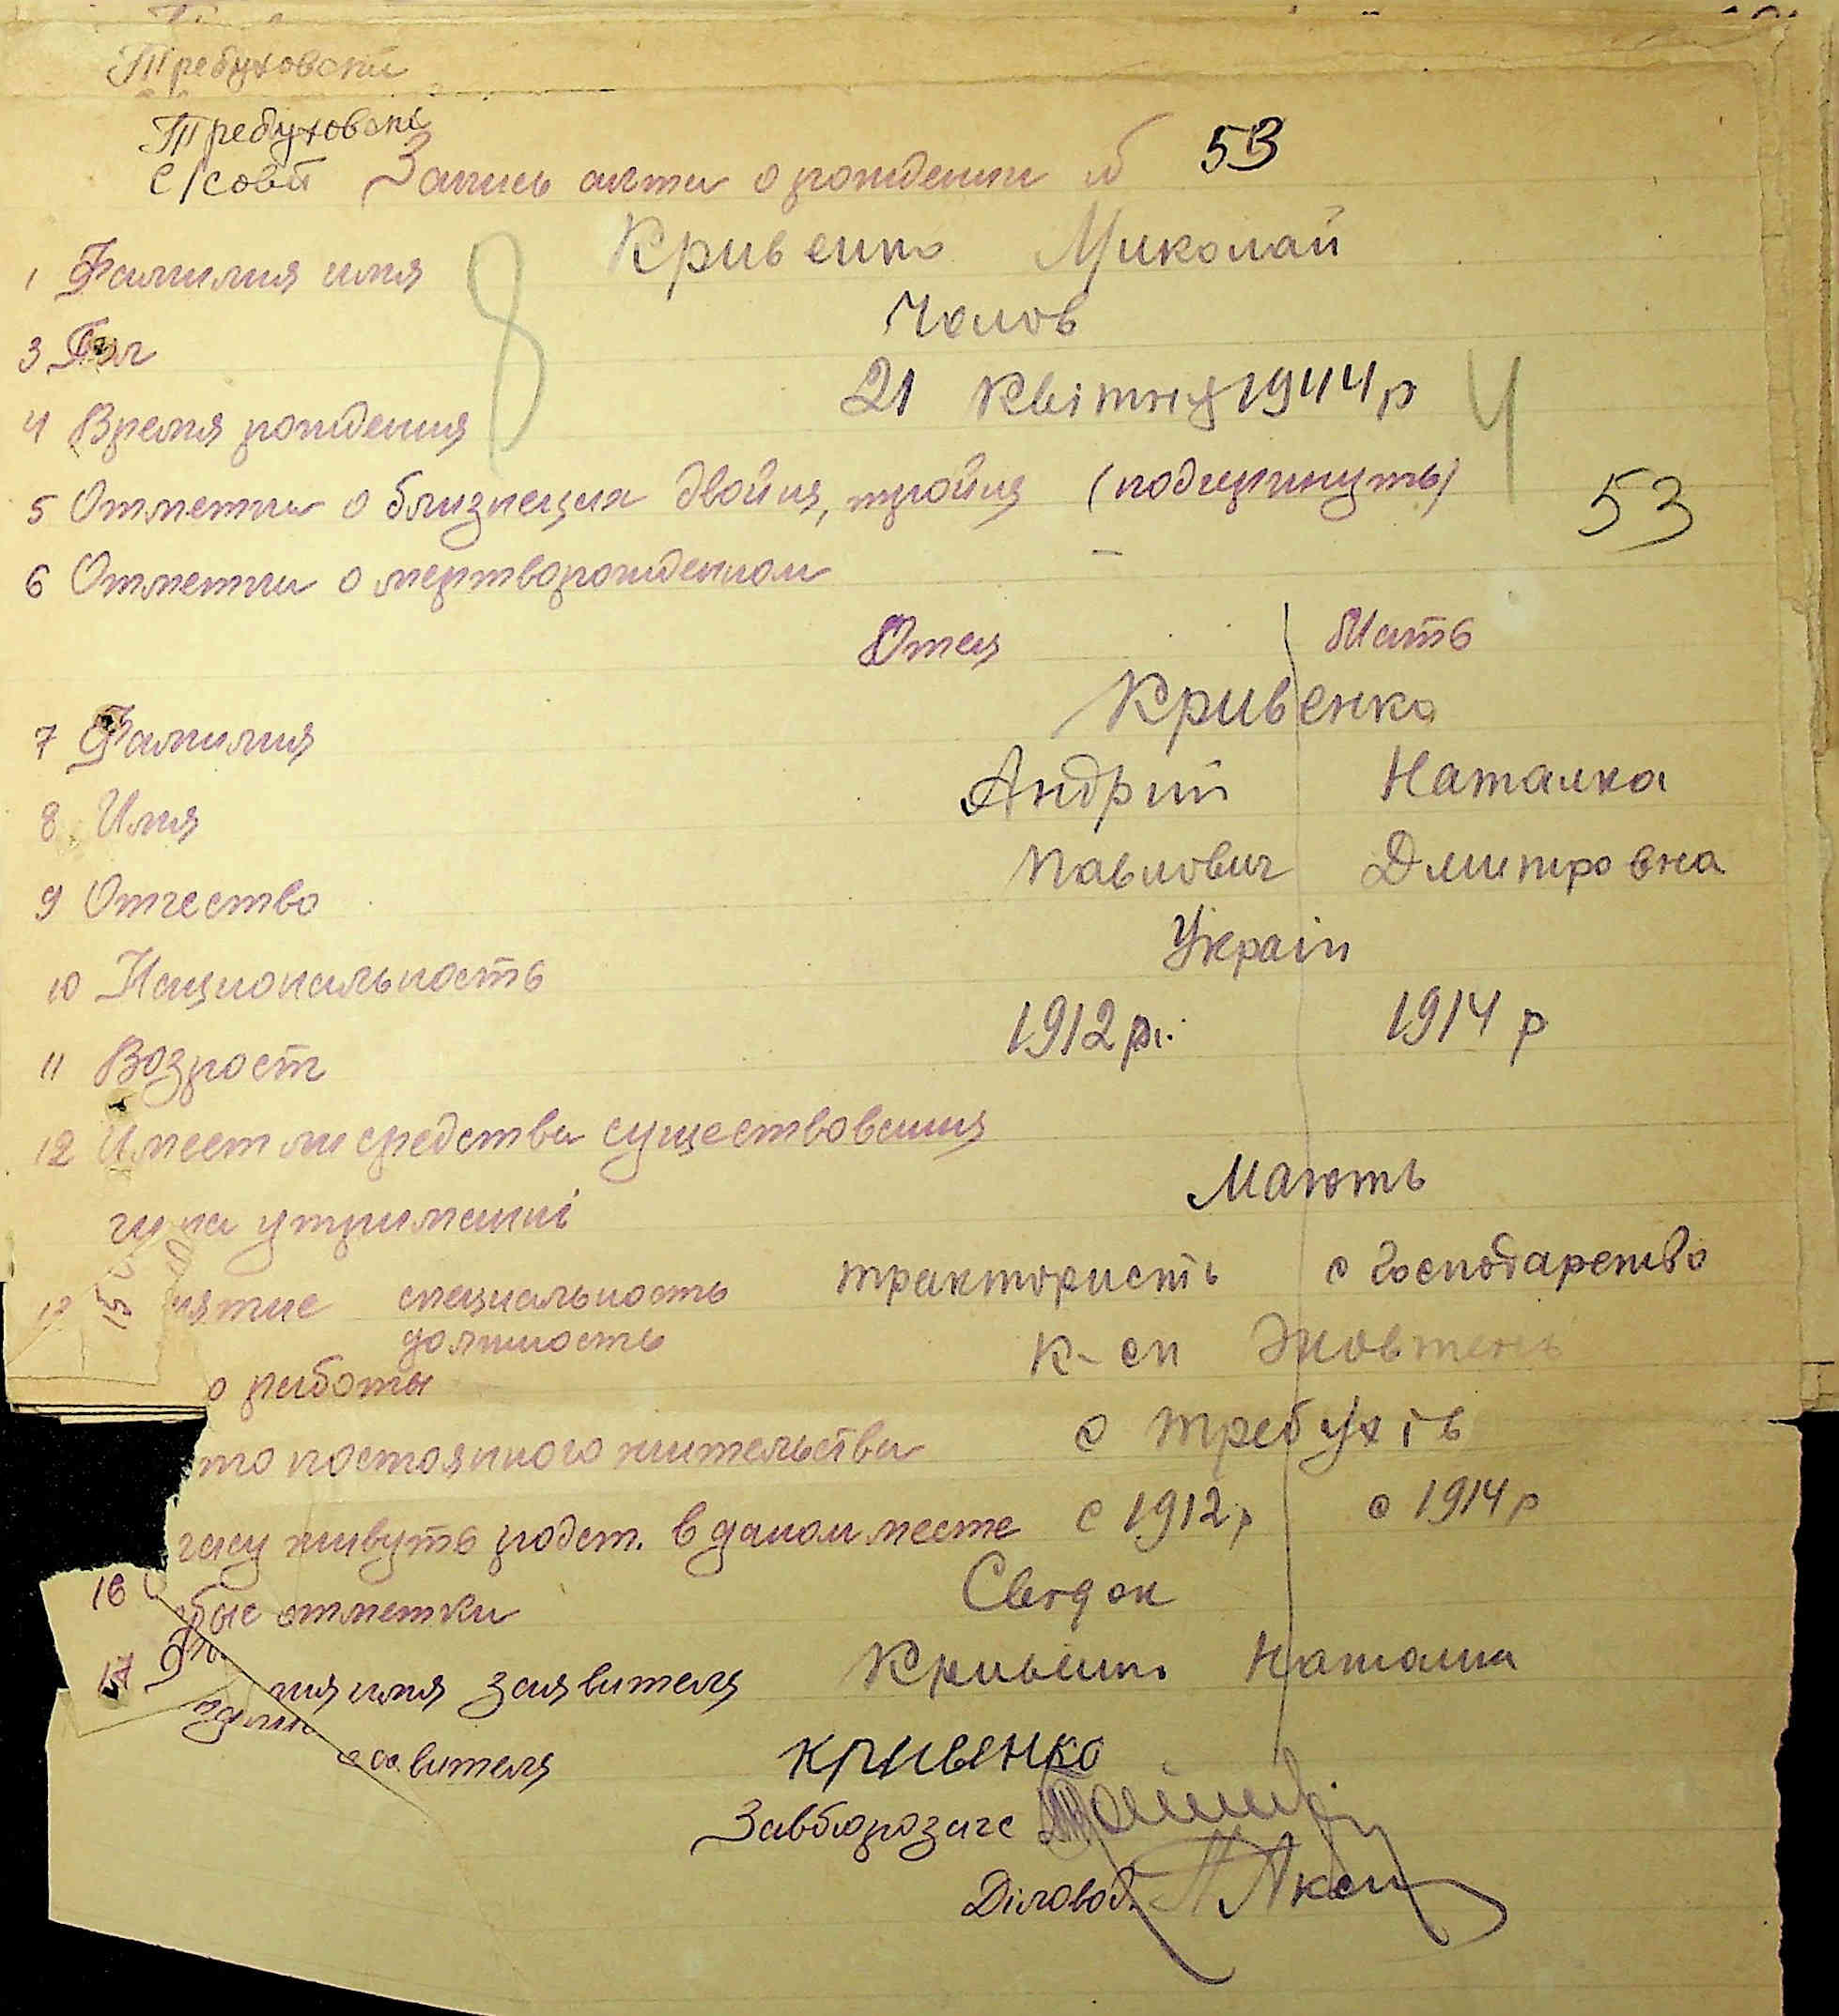 Требуховски
Требуховскі
с/совіт Запись акта о рождении № 53
1 Фамилия имя Кривенко Миколай
3 Пол Чолов
4 Время рождения 21 Квітня 1944 р
5 Отметки о близнецах двойня, тройня (подчеркнуть)
53
6 Отметки о мертворожденном –
Отец Мать
7 Фамилия Кривенко
8 Имя Андрий Наталка
9 Отчество Павлович Дмитровна
10 Национальность Україн
11 Возраст 1912 р. 1914 р
12 Имеет ли средства существования
чи на утриманні Мають
специальность тракторист с господарство
должность
о работы к-сп Жовтень
то постоянного жительства с Требухів
живуть родст. в даном месте с 1912 р с 1914 р
16 бые отметки Свєдок
17 имя заявителя Кривенко Наталка
явителя Кривенко
Завбюрозагс
Діловод